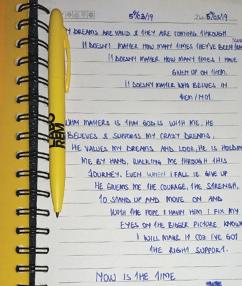 5/03/19 5/03/19
MY DREAMS ARE VALID & THEY ARE COMING THROUGH
IT DOESN'T MATTER HOW MANY TIMES THEY'VE BEEN
IT DOESN'T MATTER HOW MANY TIMES I HAVE
GIVEN UP ON THEM.
IT DOESN'T MATTER WHO BELIEVES IN
THEM / NOT.
WHAT MATTERS IS THAT GOD IS WITH ME. HE
BELIEVES & SUPPORTS MY CRAZY DREAMS.
HE VALUES MY DREAMS AND LOOK, HE IS HOLDING
ME BY HAND, WALKING ME THROUGH THIS
JOURNEY. EVEN WHEN I FALL & GIVE UP
HE GIVES ME THE COURAGE, THE STRENGTH,
TO STAND UP AND MOVE ON AND
WITH THE HOPE I HAVE IN HIM I FIX MY
EYES ON THE BIGGER PICTURE KNOWING
I WILL MAKE IT COZ I'VE GOT
THE RIGHT SUPPORT.
NOW IS THE TIME